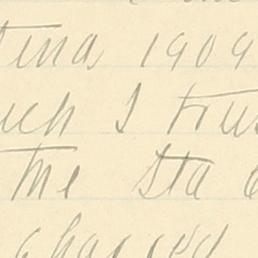 tina 1909
uch I trus
the Sta
changed